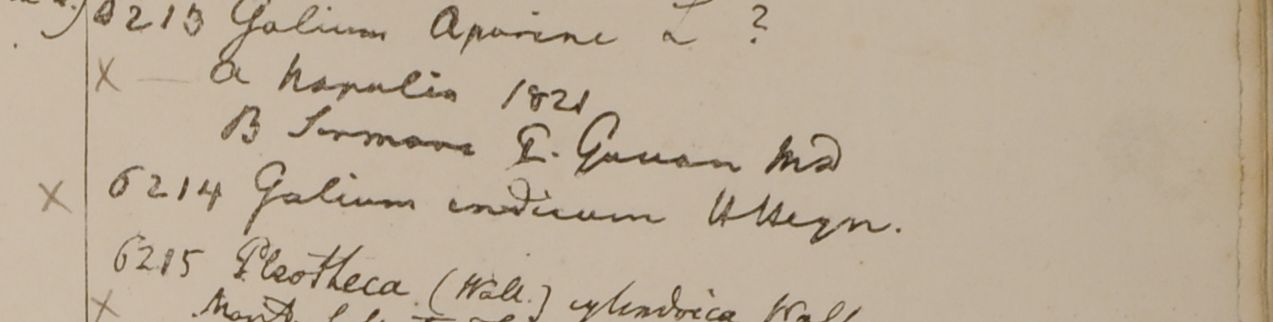 6213 Galium Aparine L ?
X — a Napalia 1821
B Sirmore G. Govan Md
X 6214 Galium indicum HHeyn.
6215 Pleotheca (Wall.) cylindrica Wall
X